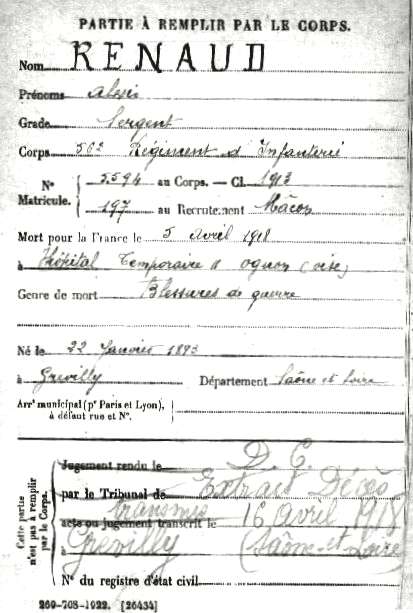 PARTIE À REMPLIR PAR LE CORPS.
Nom RENAUD
Prénoms Alexis
Grade Sergent
Corps 56e Régiment d'Infanterie
N° Matricule. 5594 au Corps. — Cl. 1913
197 au Recrutement Mâcon
Mort pour la France le 5 avril 1918
à Hôpital Temporaire d'Ognon (Oise)
Genre de mort Blessures de guerre
Né le 22 Janvier 1893
à Grevilly Département Saône et Loire
Arrt municipal (pr Paris et Lyon),
à défaut rue et N°.
Cette partie n'est pas à remplir par le Corps.
Jugement rendu le D. C.
par le Tribunal de Extrait Décès
transmis
acte ou jugement transcrit le 16 avril 1918
à Grevilly (Saône-et-Loire
N° du registre d'état civil
269-708-1922. [26434]